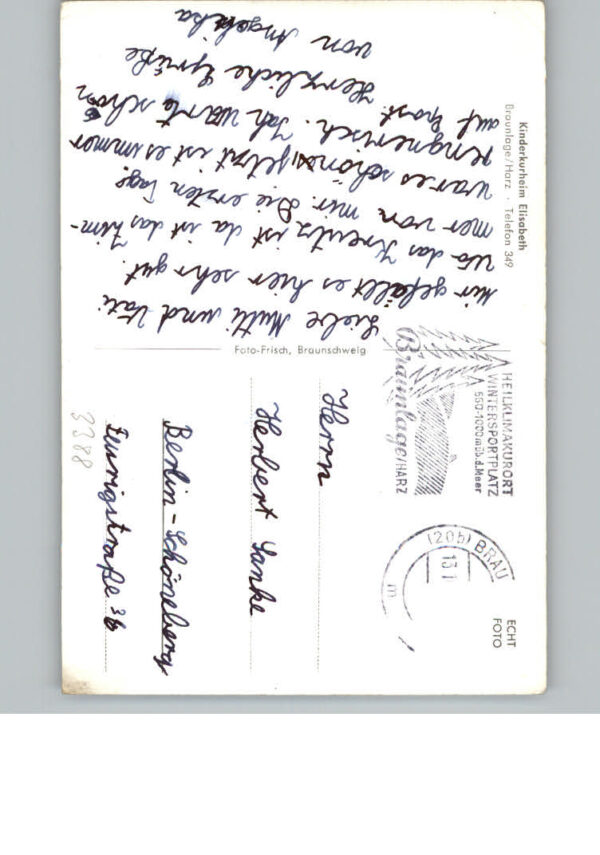 Kinderkurheim Elisabeth
Braunlage/Harz · Telefon 349
Liebe Mutti und Vati
Mir gefällt es hier sehr gut.
Wo das Kreutz ist da ist das Zim-
mer von mir. Die ersten Tage
war es schön jetzt ist es immer
regnerisch. Ich warte schon
auf Post.
Herzliche Grüße
von Angelika
Foto-Frisch, Braunschweig
HEILKLIMAKURORT
WINTERSPORTPLATZ
550-1000m üb.d.Meer
Braunlage/HARZ
(20b) BRAU
13.1
m
ECHT
FOTO
Herrn
Herbert Sanke
Berlin-Schöneberg
Feurigstraße 36
3388